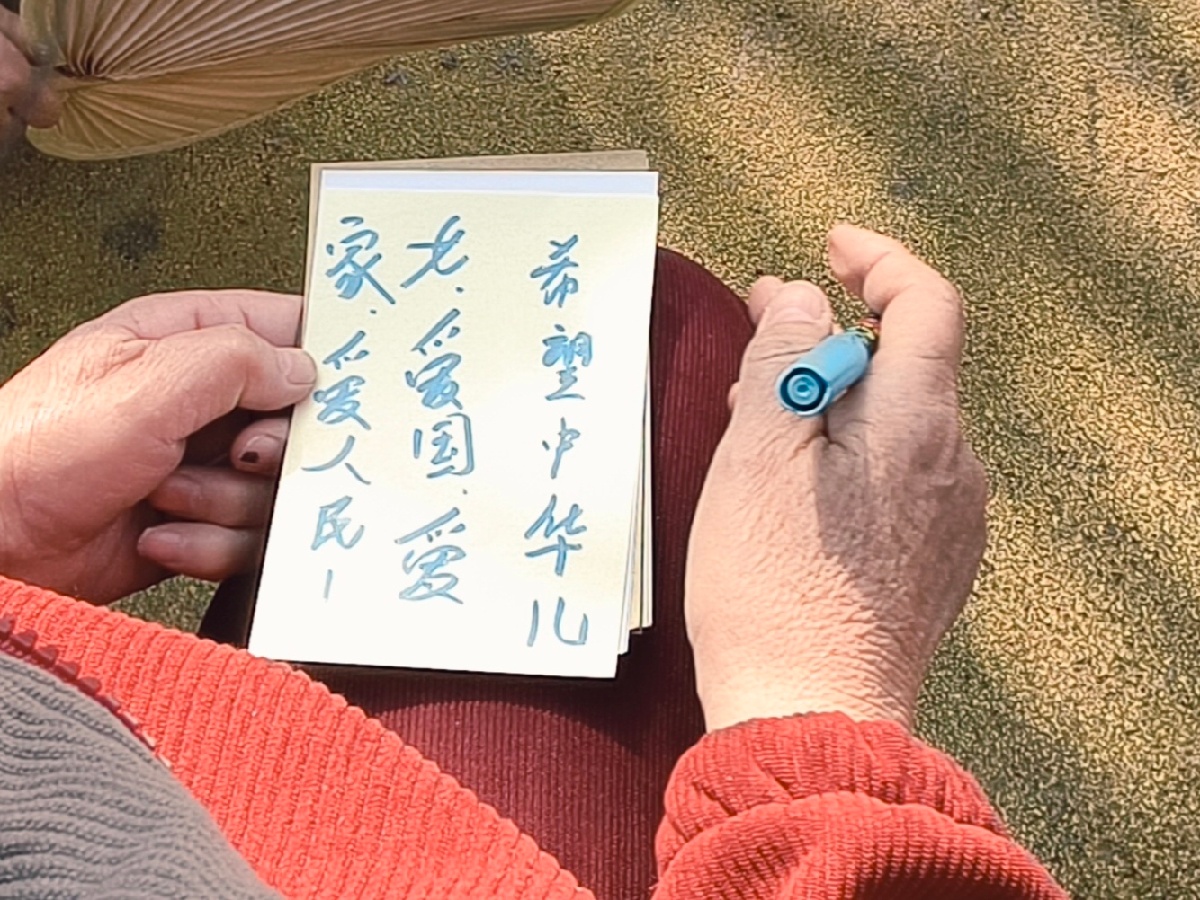 希望中华儿
女、爱国、爱
家、爱人民！